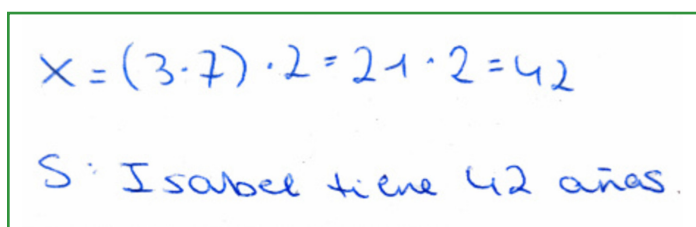 X = (3·7)·2 = 21·2 = 42
S: Isabel tiene 42 años.